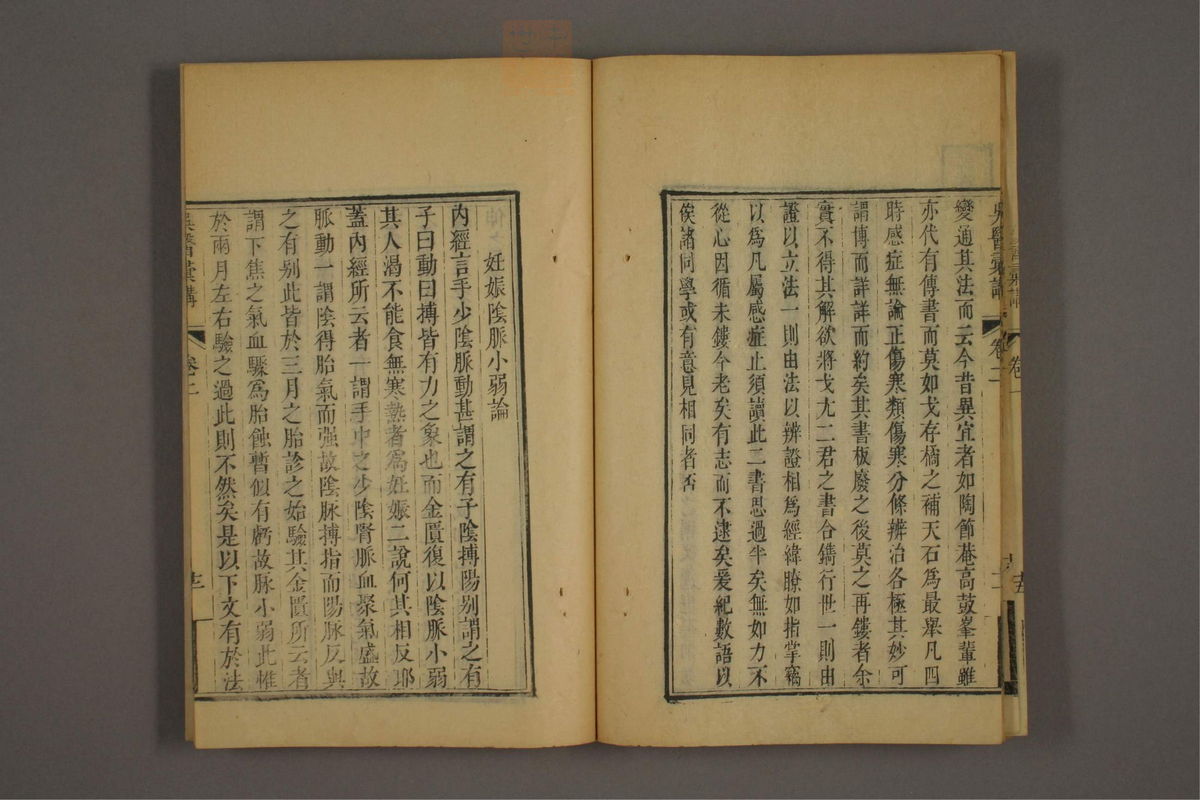 吳醫彙講
卷二
變通其法而云今昔異宜者如陶節菴高鼓峯輩雖
亦代有傳書而莫如戈存橘之補天石為最舉凡四
時感症無論正傷寒類傷寒分條辨治各極其妙可
謂博而詳詳而約矣其書板廢之後莫之再鏤者余
實不得其解欲將戈尤二君之書合鐫行世一則由
證以立法一則由法以辨證相為經緯瞭如指掌竊
以為凡屬感症止須讀此二書思過半矣無如力不
從心因循未鏤今老矣有志而不逮矣爰紀數語以
俟諸同學或有意見相同者否
妊娠陰脈小弱論
內經言手少陰脈動甚謂之有子陰搏陽別謂之有
子曰動曰搏皆有力之象也而金匱復以陰脈小弱
其人渴不能食無寒熱者為妊娠二說何其相反耶
蓋內經所云者一謂手中之少陰腎脈血聚氣盛故
脈動一謂陰得胎氣而强故陰脈搏指而陽脈反與
之有別此皆於三月之胎診之始驗其金匱所云者
謂下焦之氣血驟為胎蝕暫似有虧故脈小弱此惟
於兩月左右驗之過此則不然矣是以下文有於法
吳醫彙講
卷二